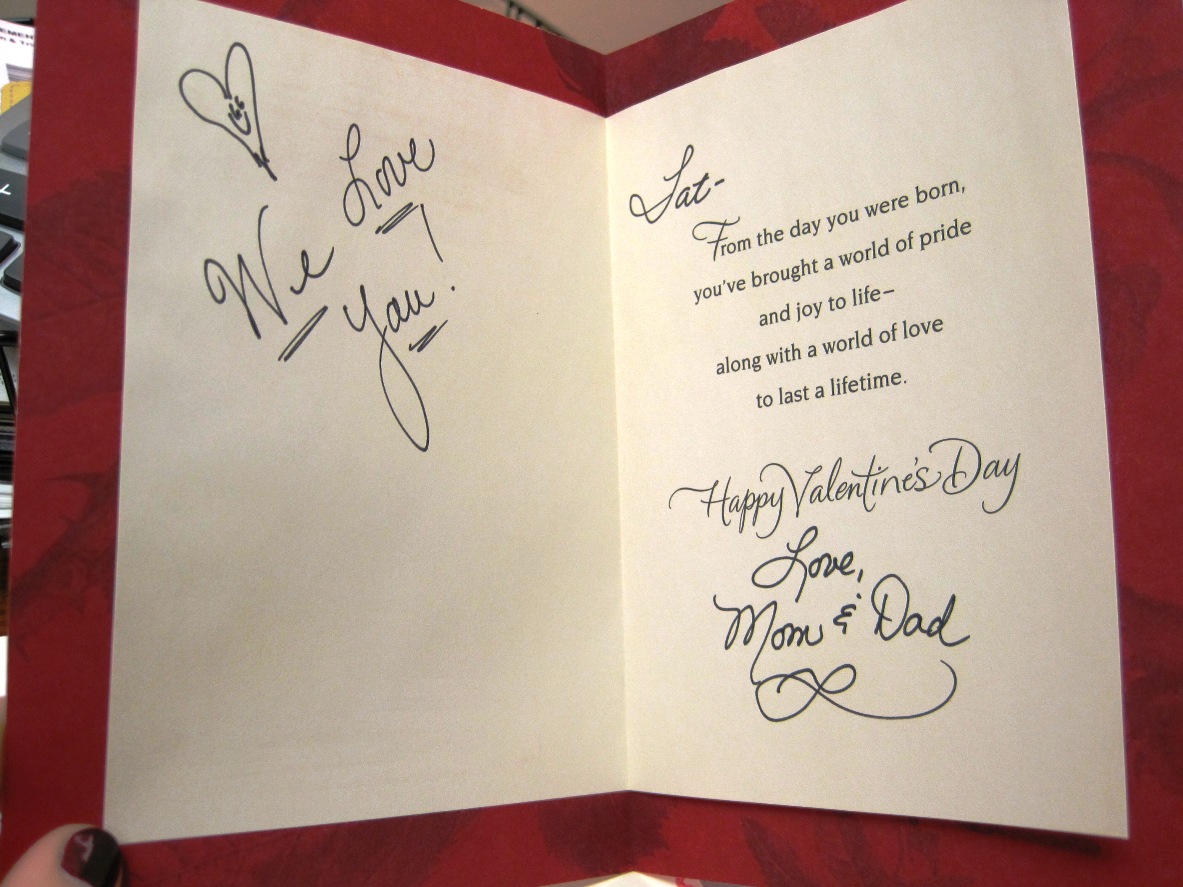 We Love
You!
Sat-
From the day you were born,
you've brought a world of pride
and joy to life–
along with a world of love
to last a lifetime.
Happy Valentine's Day
Love,
Mom & Dad